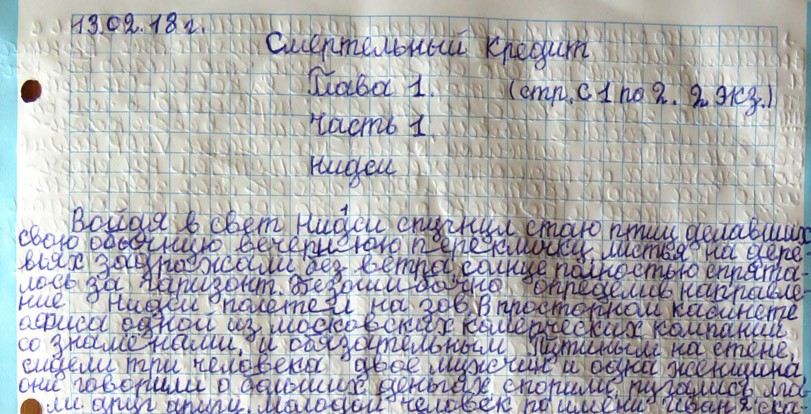 13.02.18 г.
Смертельный кредит
Глава 1. (стр. с 1 по 2. 2 экз.)
Часть 1
Нидеи
1
Войдя в свет Нидеи спугнул стаю птиц делавших
свою обычную вечернюю перекличку, листья на дере
вьях задрожали без ветра, солнце полностью спрята
лось за гаризонт. Безошибочно определив направле
ние Нидеи полетел на зов. В просторном кабинете
офиса одной из московских комерческих компании
со знаменами, и обязательным Путиным на стене,
сидели три человека двое мужчин и одна женщина
они говорили о больших деньгах спорили, пугались
ли друг другу. Молодой человек по имени Иван